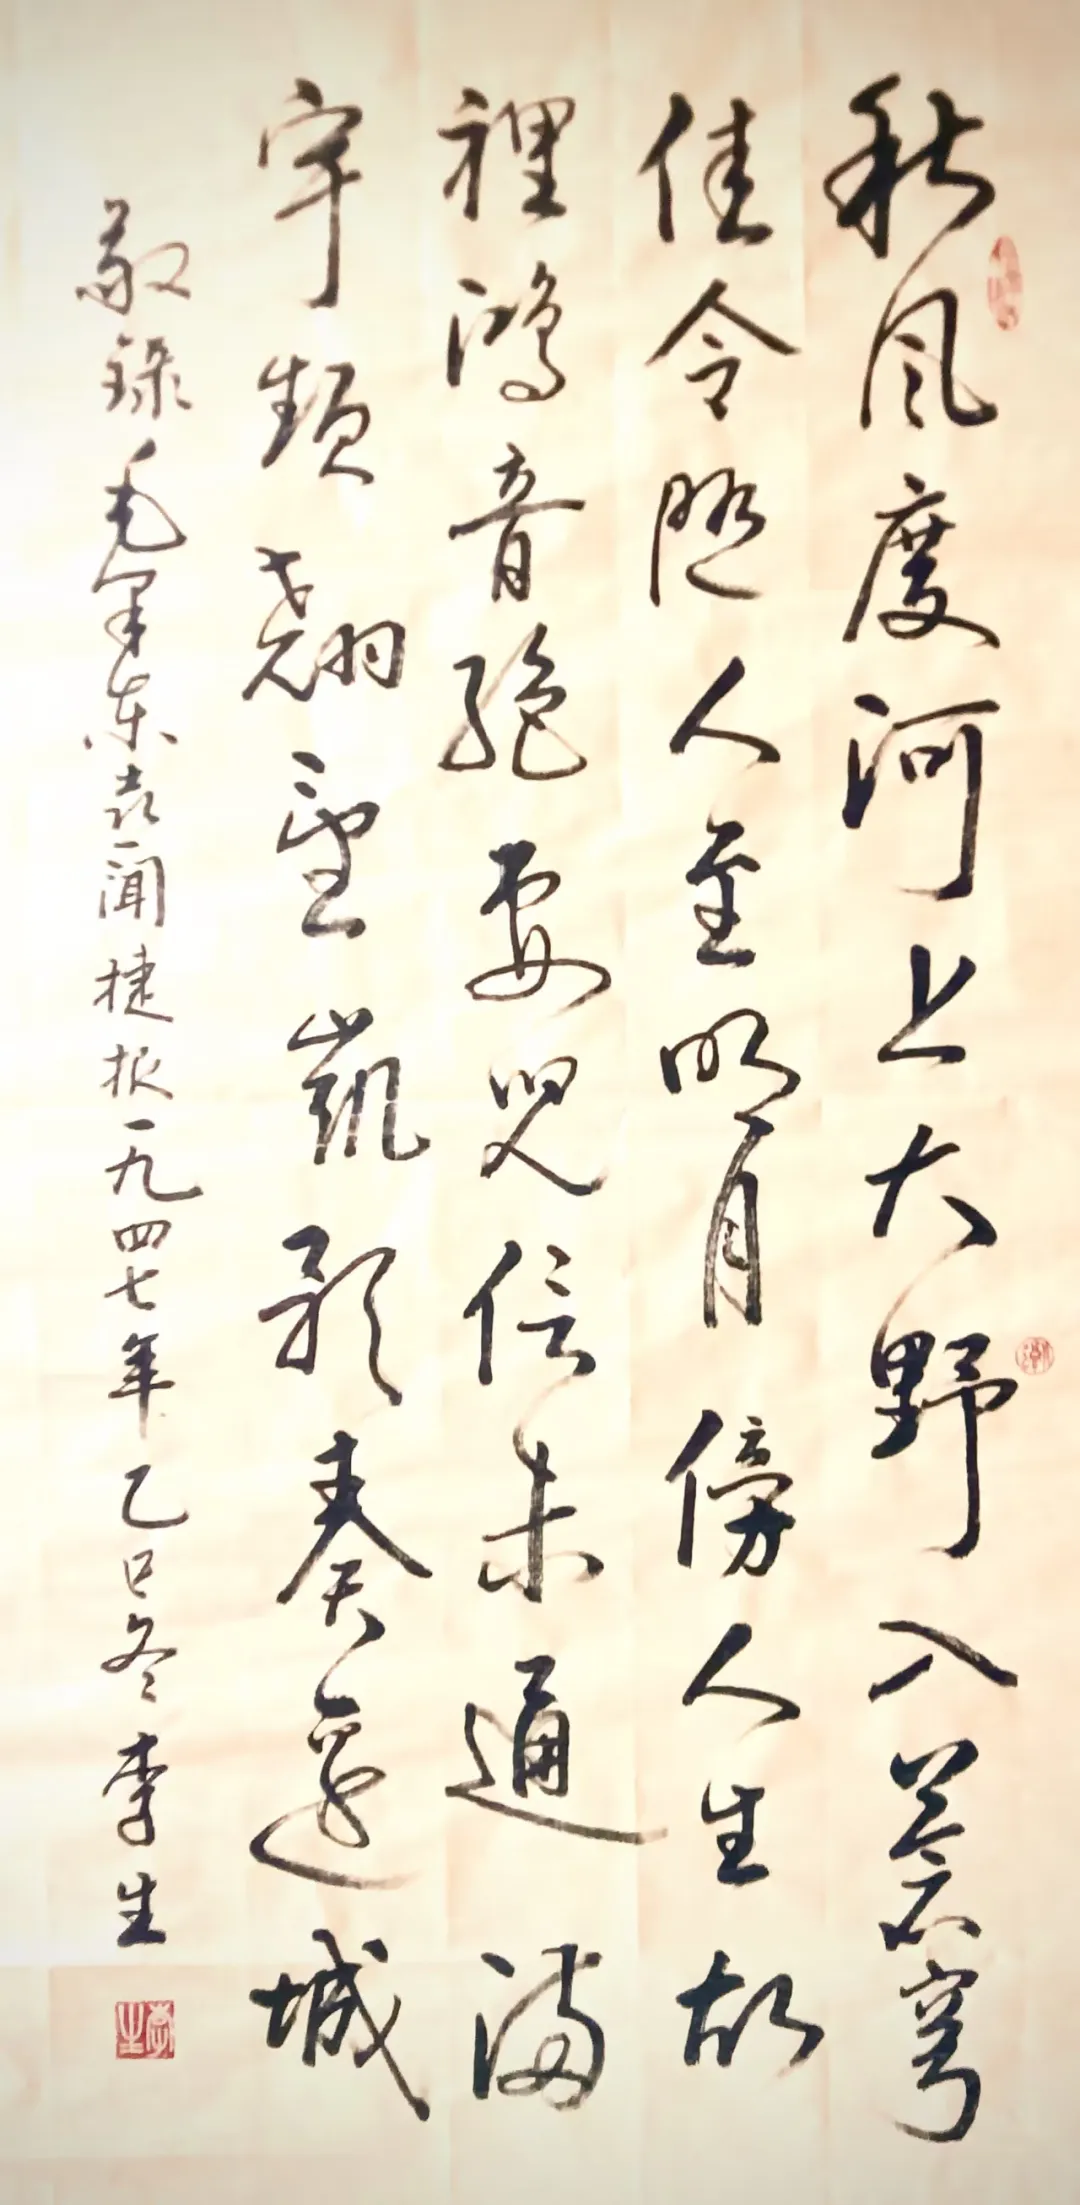 秋风度河上大野入蒼穹
佳令随人至明月傍人生故
裡鸿音絕妻兒信未通满
宇頻翹望凱歌奏邊城
敬録毛泽东喜闻捷报一九四七年乙巳冬李生
李生